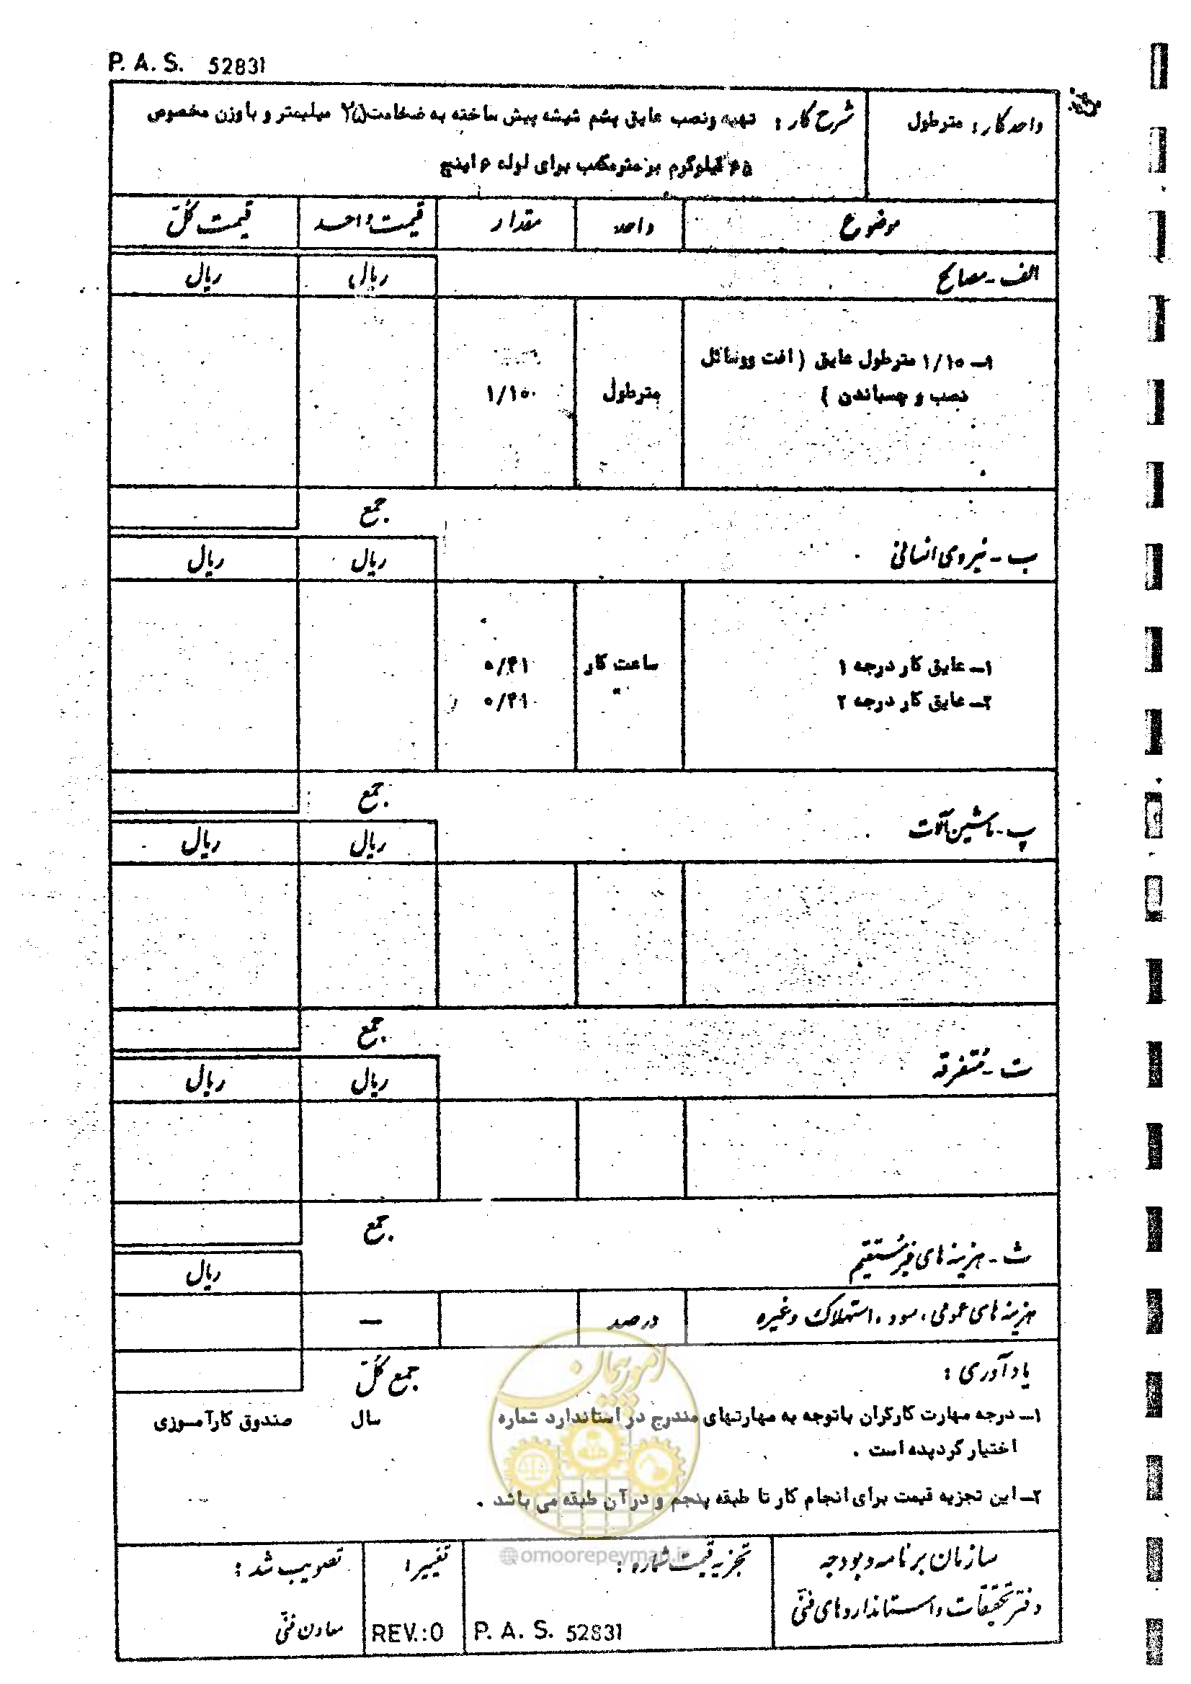 P. A. S. 52831
واحد کار : مترطول
شرح کار : تهیه ونصب عایق پشم شیشه پیش ساخته به ضخامت ۲۵ میلیمتر و باوزن مخصوص
۶۵ کیلوگرم برمترمکعب برای لوله ۶ اینچ
موضوع واحد مقدار قیمت واحد قیمت کل
الف - مصالح ریال ریال
۱ـ ۱/۱۰ مترطول عایق ( افت ووسائل
نصب و چسباندن ) مترطول ۱/۱۰
جمع
ب - نیروی انسانی ریال ریال
۱ـ عایق کار درجه ۱ ساعت کار ۰/۴۱
۲ـ عایق کار درجه ۲ " ۰/۴۱
جمع
پ - ماشین آلات ریال ریال
جمع
ت - متفرقه ریال ریال
جمع
ث - هزینه های غیرمستقیم ریال
هزینه های عمومی ، سود ، استهلاک وغیره درصد —
یادآوری : جمع کل
۱ـ درجه مهارت کارگران باتوجه به مهارتهای مندرج در استاندارد شماره سال صندوق کارآموزی
اختیار گردیده است .
۲ـ این تجزیه قیمت برای انجام کار تا طبقه پنجم و درآن طبقه می باشد .
امور پیمان
@omoorepeyman.ir
سازمان برنامه و بودجه
دفتر تحقیقات و استانداردهای فنی
تجزیه قیمت شماره :
P. A. S. 52831
تغییر :
REV.:0
تصویب شد :
معاون فنی